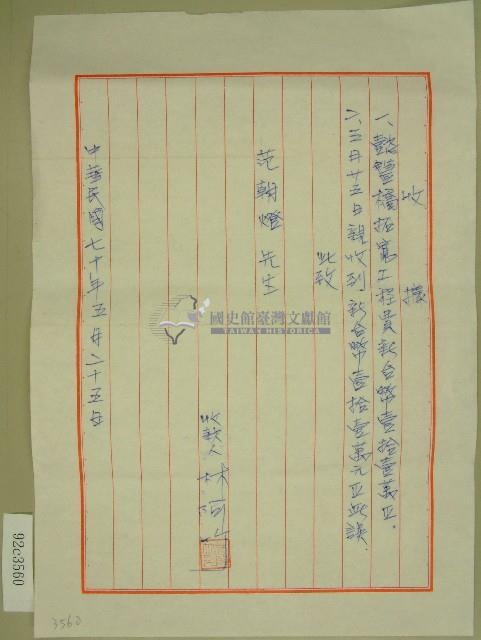 收據
一、懿豐橋拓寬工程費新台幣壹拾壹萬正.
二、三月廿五日親收到新台幣壹拾壹萬元正此議.
此致
范朝燈 先生
收款人 林河山
中華民國七十年五月二十五日
國史館臺灣文獻館
TAIWAN HISTORICA
92c3560
3560